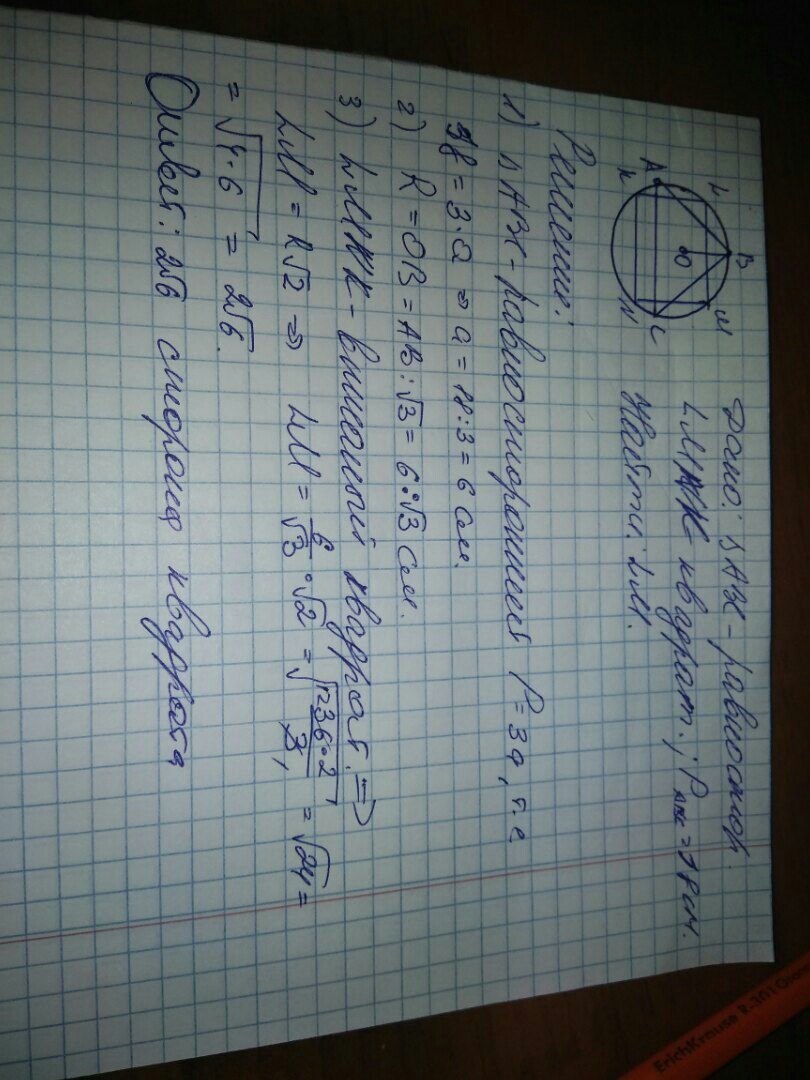 B
L
M
60
A
C
K
N
Дано: △ABC - равностор.
LMNK квадрат.; P ABC = 18 см.
Найти: LM.
Решение:
1) △ABC - равносторонний P = 3a, т.е
18 = 3·a ⇒ a = 18:3 = 6 см.
2) R = OB = AB:√3 = 6:√3 см.
3) LMNK - вписанный квадрат. ⇒
LM = R√2 ⇒ LM = 6/√3 · √2 = √(36·2/3) = √24 =
= √4·6 = 2√6.
Ответ: 2√6 сторона квадрата
ErichKrause R-301